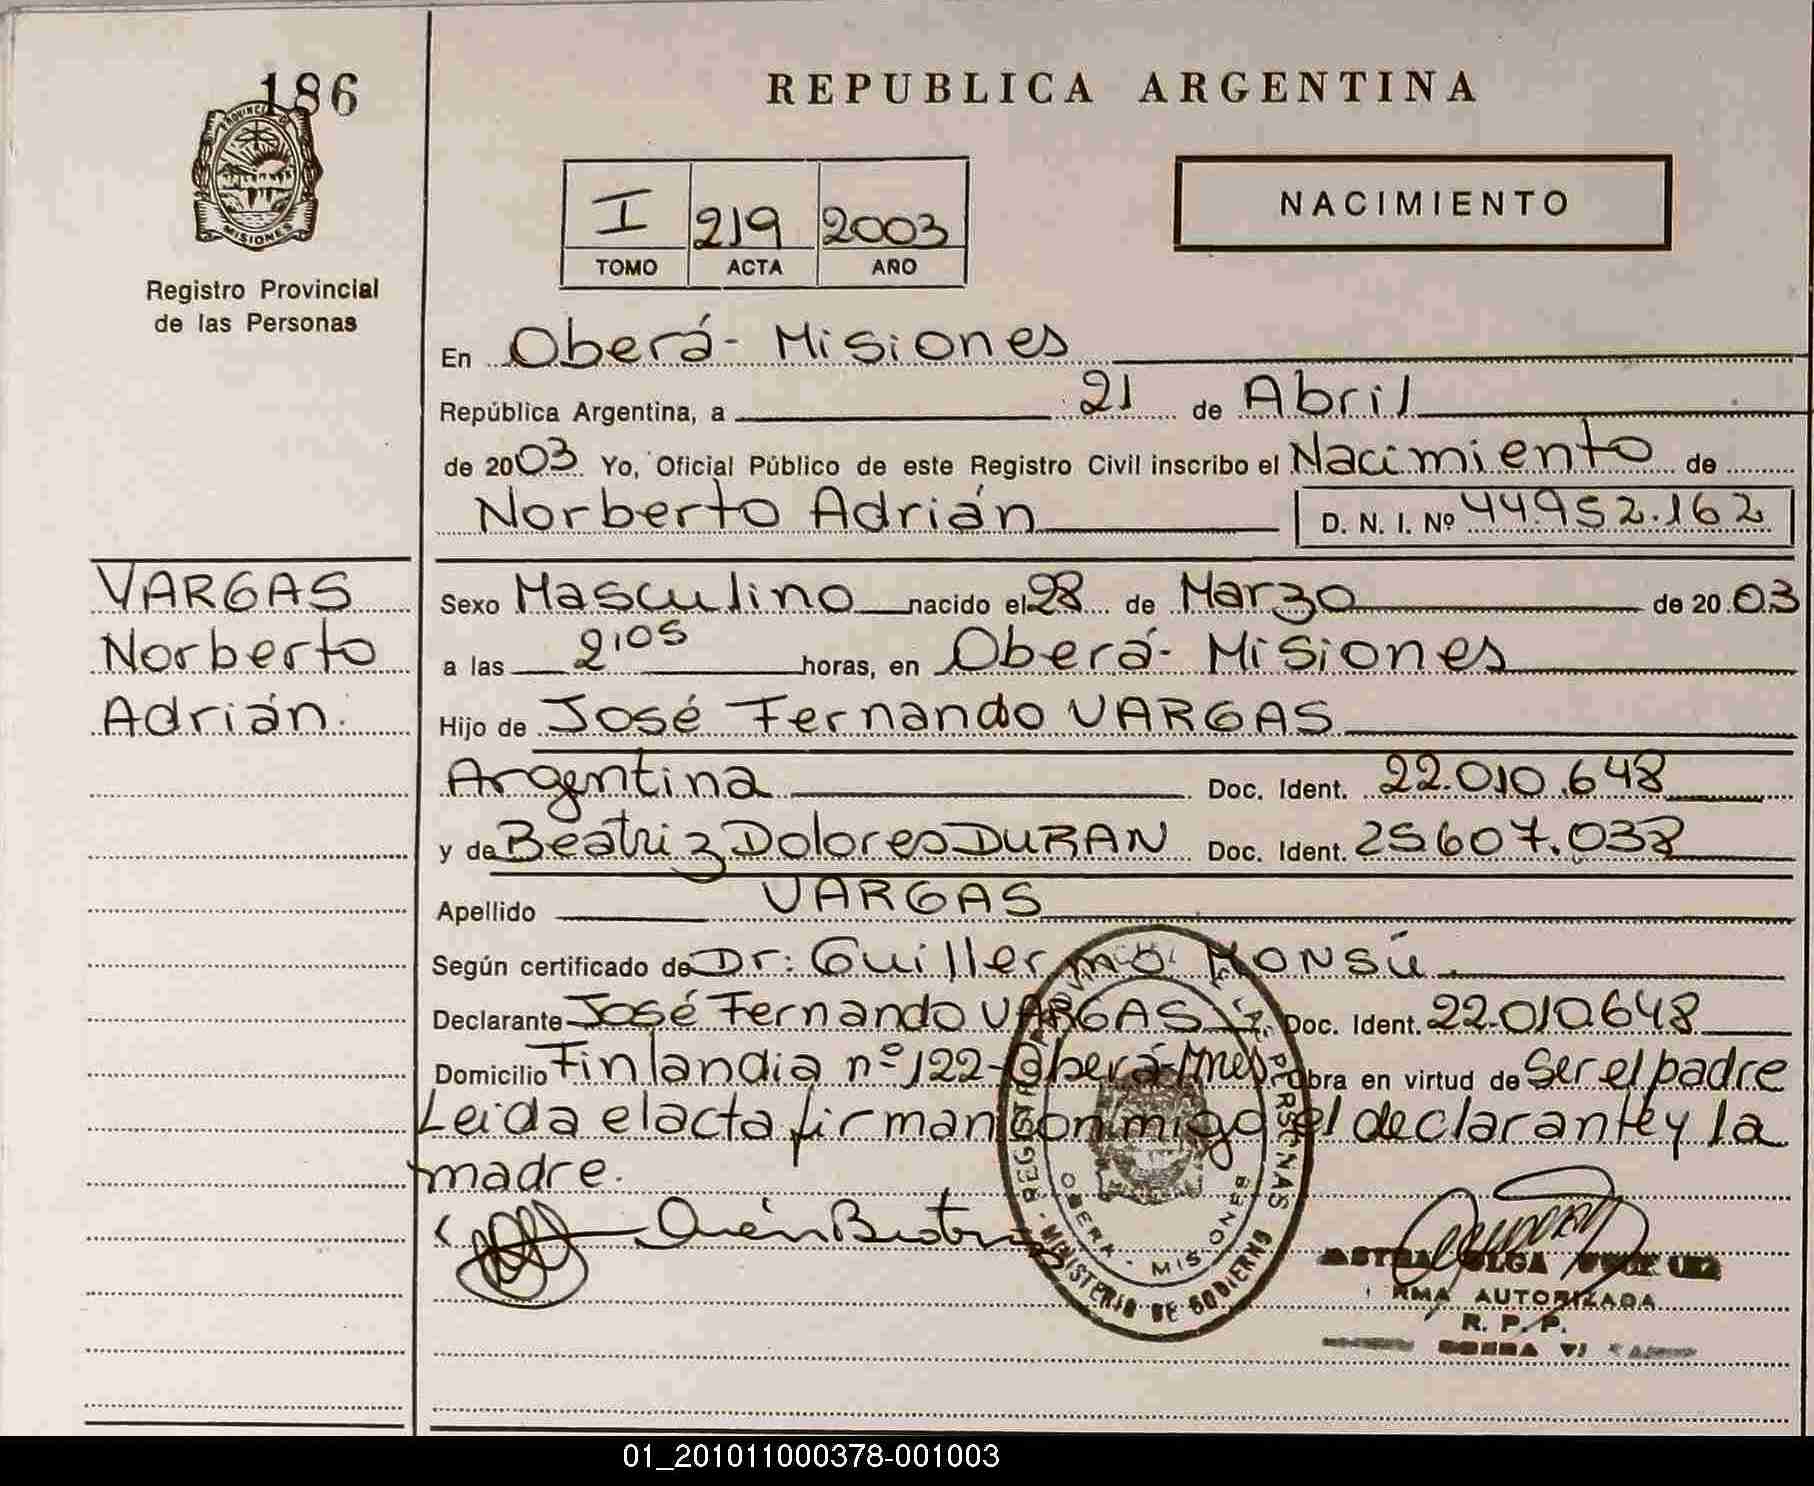 186
PROVINCIA DE
MISIONES
Registro Provincial
de las Personas
VARGAS
Norberto
Adrián.
REPUBLICA ARGENTINA
NACIMIENTO
I 219 2003
TOMO ACTA AÑO
En Oberá- Misiones
República Argentina, a 21 de Abril
de 2003 Yo, Oficial Público de este Registro Civil inscribo el Nacimiento de
Norberto Adrián D. N. I. Nº 44.952.162
Sexo Masculino nacido el 28 de Marzo de 2003
a las 2'05 horas, en Oberá- Misiones
Hijo de José Fernando VARGAS
Argentina Doc. Ident. 22.010.648
y de Beatriz Dolores DURAN Doc. Ident. 25607.038
Apellido VARGAS
Según certificado de Dr: Guillermo MONSÚ.
Declarante José Fernando VARGAS Doc. Ident. 22.010.648
Domicilio Finlandia nº 122-Oberá-Mnes. Obra en virtud de Ser el padre
Leida el acta firman conmigo el declarante y la
madre.
OBERA - MISIONES
MINISTERIO DE GOBIERNO
OLGA
FIRMA AUTORIZADA
R. P. P.
01_201011000378-001003